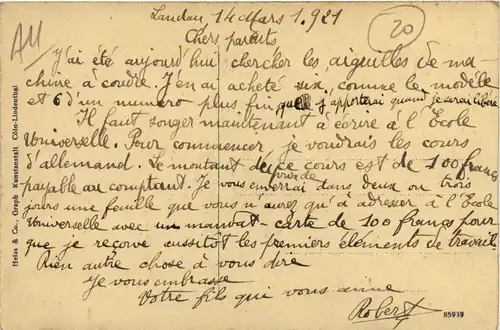 Landau 14 Mars 1.921
20
AU
Chers parents
J'ai été aujourd'hui chercher les aiguilles de ma-
chine à coudre. J'en ai acheté six comme le modèle
et 6 d'un numéro plus fin que j'apporterai quand je serai libéré
Il faut songer maintenant à écrire à l'École
Universelle. Pour commencer je voudrais les cours
d'allemand. Le montant de ce cours est de 100 francs
payable au comptant. Je vous enverrai dans deux ou trois
jours une feuille que vous n'aurez qu'à adresser à l'École
Universelle avec un mandat-carte de 100 francs pour
que je reçoive aussitôt les premiers éléments de travail.
Rien autre chose à vous dire
Je vous embrasse
Votre fils qui vous aime
Robert
Heiss & Co., Graph. Kunstanstalt Cöln-Lindenthal
85939